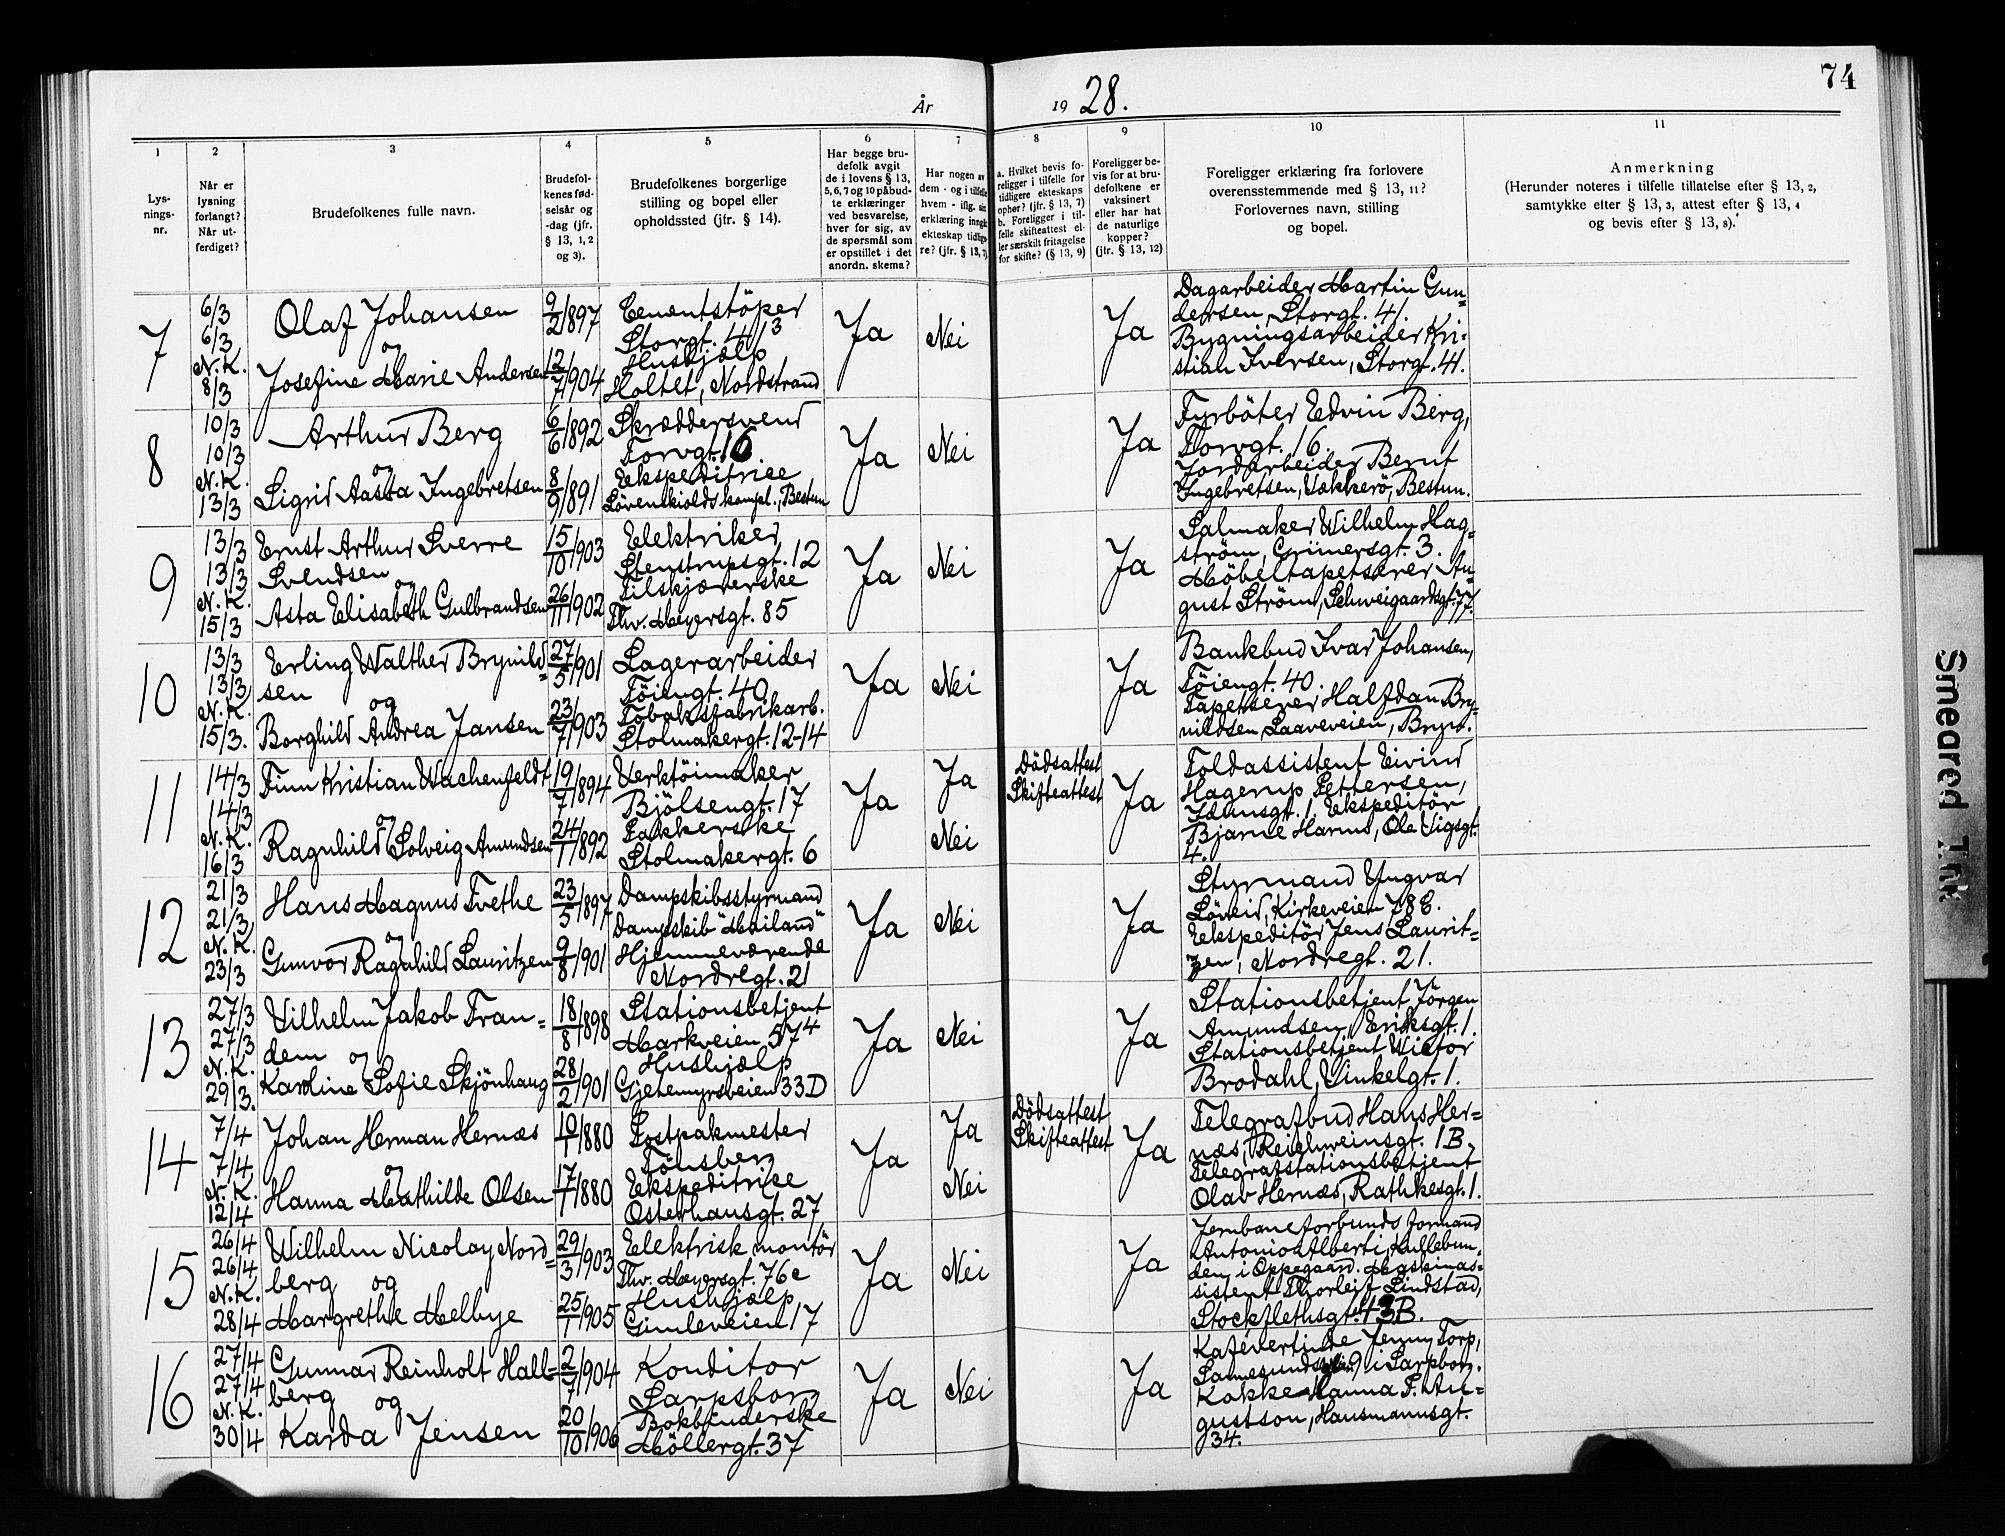 74
År 1928.
1 2 3 4 5 6 7 8 9 10 11
Lys-
nings-
nr.
Når er
lysning
forlangt?
Når ut-
ferdiget?
Brudefolkenes fulle navn.
Brudefol-
kenes fød-
selsår og
-dag (jfr.
§ 13, 1, 2
og 3).
Brudefolkenes borgerlige
stilling og bopel eller
opholdssted (jfr. § 14).
Har begge bru-
defolk avgit
de i lovens § 13,
5, 6, 7 og 10 påbud-
te erklæringer
ved besvarelse,
hver for sig, av
de spørsmål som
er opstillet i det
anordn. skema?
Har nogen av
dem - og i tilfelle
hvem - iflg. sin
erklæring inngått
ekteskap tidlige-
re? (jfr. § 13, 7)
a. Hvilket bevis fo-
religger i tilfelle for
tidligere ekteskaps
ophør? (jfr. § 13, 7)
b. Foreligger i til-
felle skifteattest el-
ler særskilt fritagelse
for skifte? (§ 13, 9)
Foreligger be-
vis for at bru-
defolkene er
vaksinert
eller har hat
de naturlige
kopper?
(jfr. § 13, 12)
Foreligger erklæring fra forlovere
overensstemmende med § 13, 11?
Forlovernes navn, stilling
og bopel.
Anmerkning
(Herunder noteres i tilfelle tillatelse efter § 13, 2,
samtykke efter § 13, 3, attest efter § 13, 4
og bevis efter § 13, 8).
7
6/3
6/3
N.K.
8/3
Olaf Johansen
og
Josefine Marie Andersen
9/2 1897
12/7 1904
Cementstöper
Storgt. 41³
Hushjælp
Holtet, Nordstrand
Ja
Nei
Ja
Dagarbeider Martin Gun-
dersen, Storgt. 41.
Bygningsarbeider Kri-
stian Iversen, Storgt. 41.
8
10/3
10/3
N.K.
13/3
Arthur Berg
og
Sigrid Aasta Ingebretsen
6/6 1892
8/9 1891
Skræddersvend
Torvgt. 16.
Ekspeditrice
Lövenskiolds kompl., Bestun
Ja
Nei
Ja
Fyrböter Edvin Berg,
Torvgt. 16.
Jordarbeider Bernt
Ingebretsen, Vækkerö, Bestun.
9
13/3
13/3
N.K.
15/3
Ernst Arthur Sverre
Svendsen
og
Asta Elisabeth Gulbrandsen
15/10 1903
26/11 1902
Elektriker
Stenstrupsgt. 12
Tilskjærerske
Thv. Meyersgt. 85
Ja
Nei
Ja
Salmaker Wilhelm Hag-
ström, Grünersgt. 3.
Möbeltapetserer Au-
gust Ström, Schweigaardsgt. 77.
10
13/3
13/3
N.K.
15/3.
Erling Walther Brynild-
sen
og
Borghild Andrea Jansen
27/5 1901
23/7 1903
Lagerarbeider
Töiengt. 40
Tobaksfabrikarb.
Stolmakergt. 12-14
Ja
Nei
Ja
Bankbud Ivar Johansen,
Töiengt. 40.
Tapetserer Halfdan Bry-
nildsen, Laaveveien, Bryn.
11
14/3
14/3
N.K.
16/3
Finn Kristian Wachenfeldt
og
Ragnhild Solveig Amundsen
19/7 1894
24/11 1892
Verktöimaker
Bjölsengt. 17
Pakkerske
Stolmakergt. 6
Ja
Ja
Nei
Dödsattest
Skifteattest
Ja
Toldassistent Eivind
Hagerup Pettersen,
Idunsgt. 1. Ekspeditör
Bjarne Harms, Ole Vigsgt.
4.
12
21/3
21/3
N.K.
23/3
Hans Magnus Tvethe
og
Gunvor Ragnhild Lauritzen
23/5 1897
9/8 1901
Dampskibsstyrmand
Dampskib "Mailand"
Hjemmeværende
Nordregt. 21
Ja
Nei
Ja
Styrmand Yngvar
Löveid, Kirkeveien 78 C.
Ekspeditör Jens Laurit-
zen, Nordregt. 21.
13
27/3
27/3
N.K.
29/3.
Vilhelm Jakob Fran-
dem og
Karoline Sofie Skjönhaug
18/8 1898
28/2 1901
Stationsbetjent
Markveien 57⁴
Hushjælp
Gjetemyrsveien 33D
Ja
Nei
Ja
Stationsbetjent Jörgen
Amundsen, Eriksgt. 1.
Stationsbetjent Wictor
Brodahl, Vinkelgt. 1.
14
7/4
7/4
N.K.
12/4
Johan Herman Hernæs
og
Hanna Mathilde Olsen
10/1 1880
17/1 1880
Postpakmester
Tönsberg
Ekspeditrice
Osterhausgt. 27
Ja
Ja
Nei
Dödsattest
Skifteattest
Ja
Telegrafbud Hans Her-
næs, Reichweinsgt. 1B.
Telegrafstationsbetjent
Olav Hernæs, Rathkesgt. 1.
15
26/4
26/4
N.K.
28/4
Wilhelm Nicolay Nord-
berg og
Margrethe Melbye
29/3 1903
25/1 1905
Elektrisk montör
Thv. Meyersgt. 76c
Hushjælp
Gimleveien 17
Ja
Nei
Ja
Jernbaneforbunds formand
Antonio Alberti, Kullebun-
den i Oppegaard. Maskinas-
sistent Thorleif Lindstad,
Stockflethsgt. 43B.
16
27/4
27/4
N.K.
30/4
Gunnar Reinholt Hall-
berg og
Karda Jensen
2/7 1904
20/10 1906
Konditor
Sarpsborg
Bokbinderske
Möllergt. 37
Ja
Nei
Ja
Kafévertinde Jenny Torp,
9 i Sarpborg.
Kokke Hanna S. Au-
gustson, Hausmannsgt.
34.
Smeared Ink